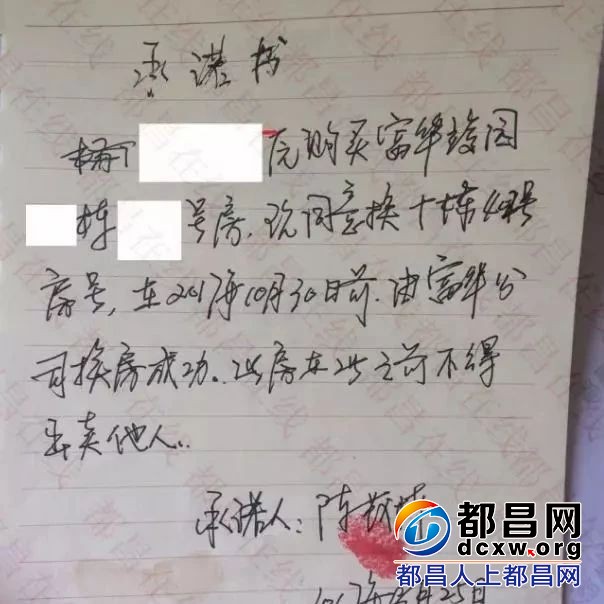 承诺书
元购买富华臻园
栋 号房，现同意换十栋
房号，在2017年10月30日前，由富华公
司换房成功。此房在此之前不得
出卖他人。
承诺人：陈
月25日
都昌网
dcxw.org
都昌人上都昌网
都昌在线